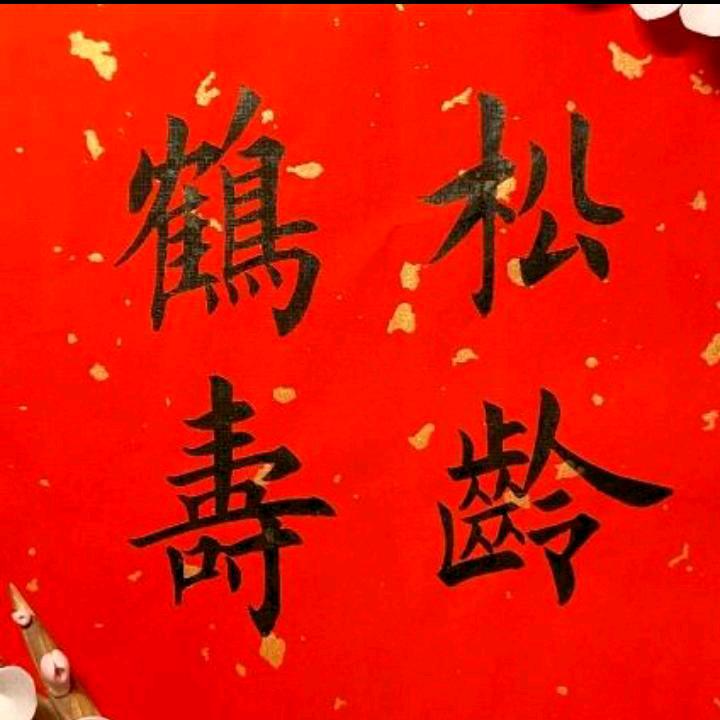 松齡
鶴壽